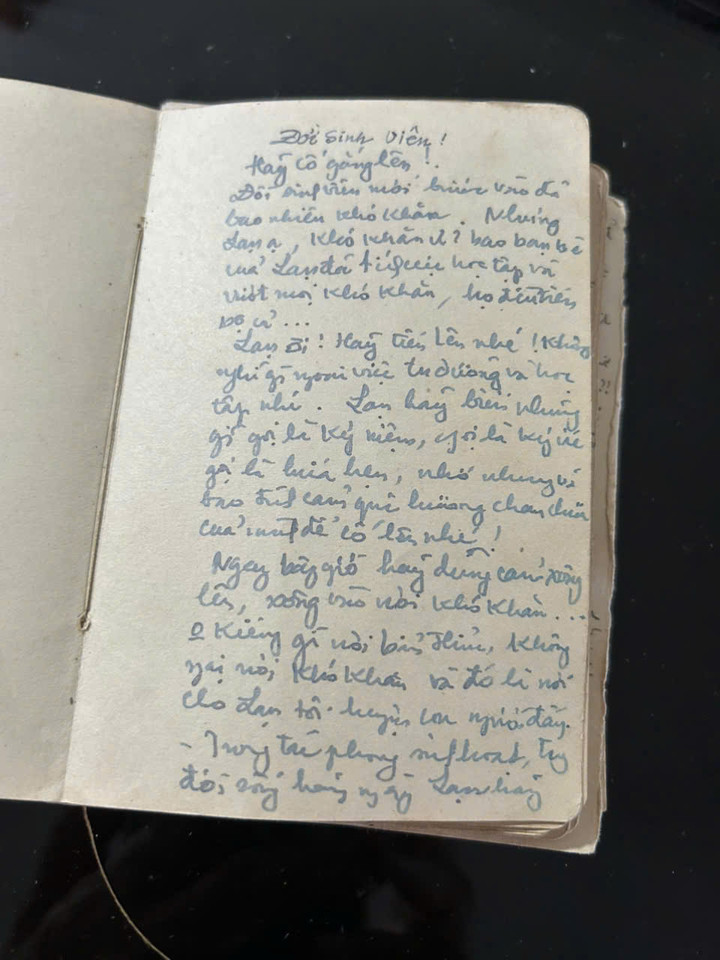 Đời Sinh Viên!
Hãy cố gắng lên!..
Đời sinh viên mới bước vào đã
bao nhiên khó khăn. Nhưng
Lan ạ, khó khăn ? bao bạn bè
của Lan đã học tập và
vượt mọi khó khăn, họ đều tiến
bộ cả...
Lan ơi! Hãy tiến lên nhé! Không
nghĩ gì ngoài việc tu dưỡng và học
tập nhé. Lan hãy biến những
gì gọi là kỷ niệm, gọi là ký ức
gọi là hứa hẹn, nhớ nhung và
bao tình cảm quê hương chan chứa
của mình để cố lên nhé!
Ngay bây giờ hãy dũng cảm xông
lên, xông vào nơi khó khăn...
Kiêng gì nơi , không
ngại nơi khó khăn và đó là nơi
cho Lan tôi luyện con người đấy.
- Trong tác phong sinh hoạt, trg
đời sống hàng ngày Lan hãy